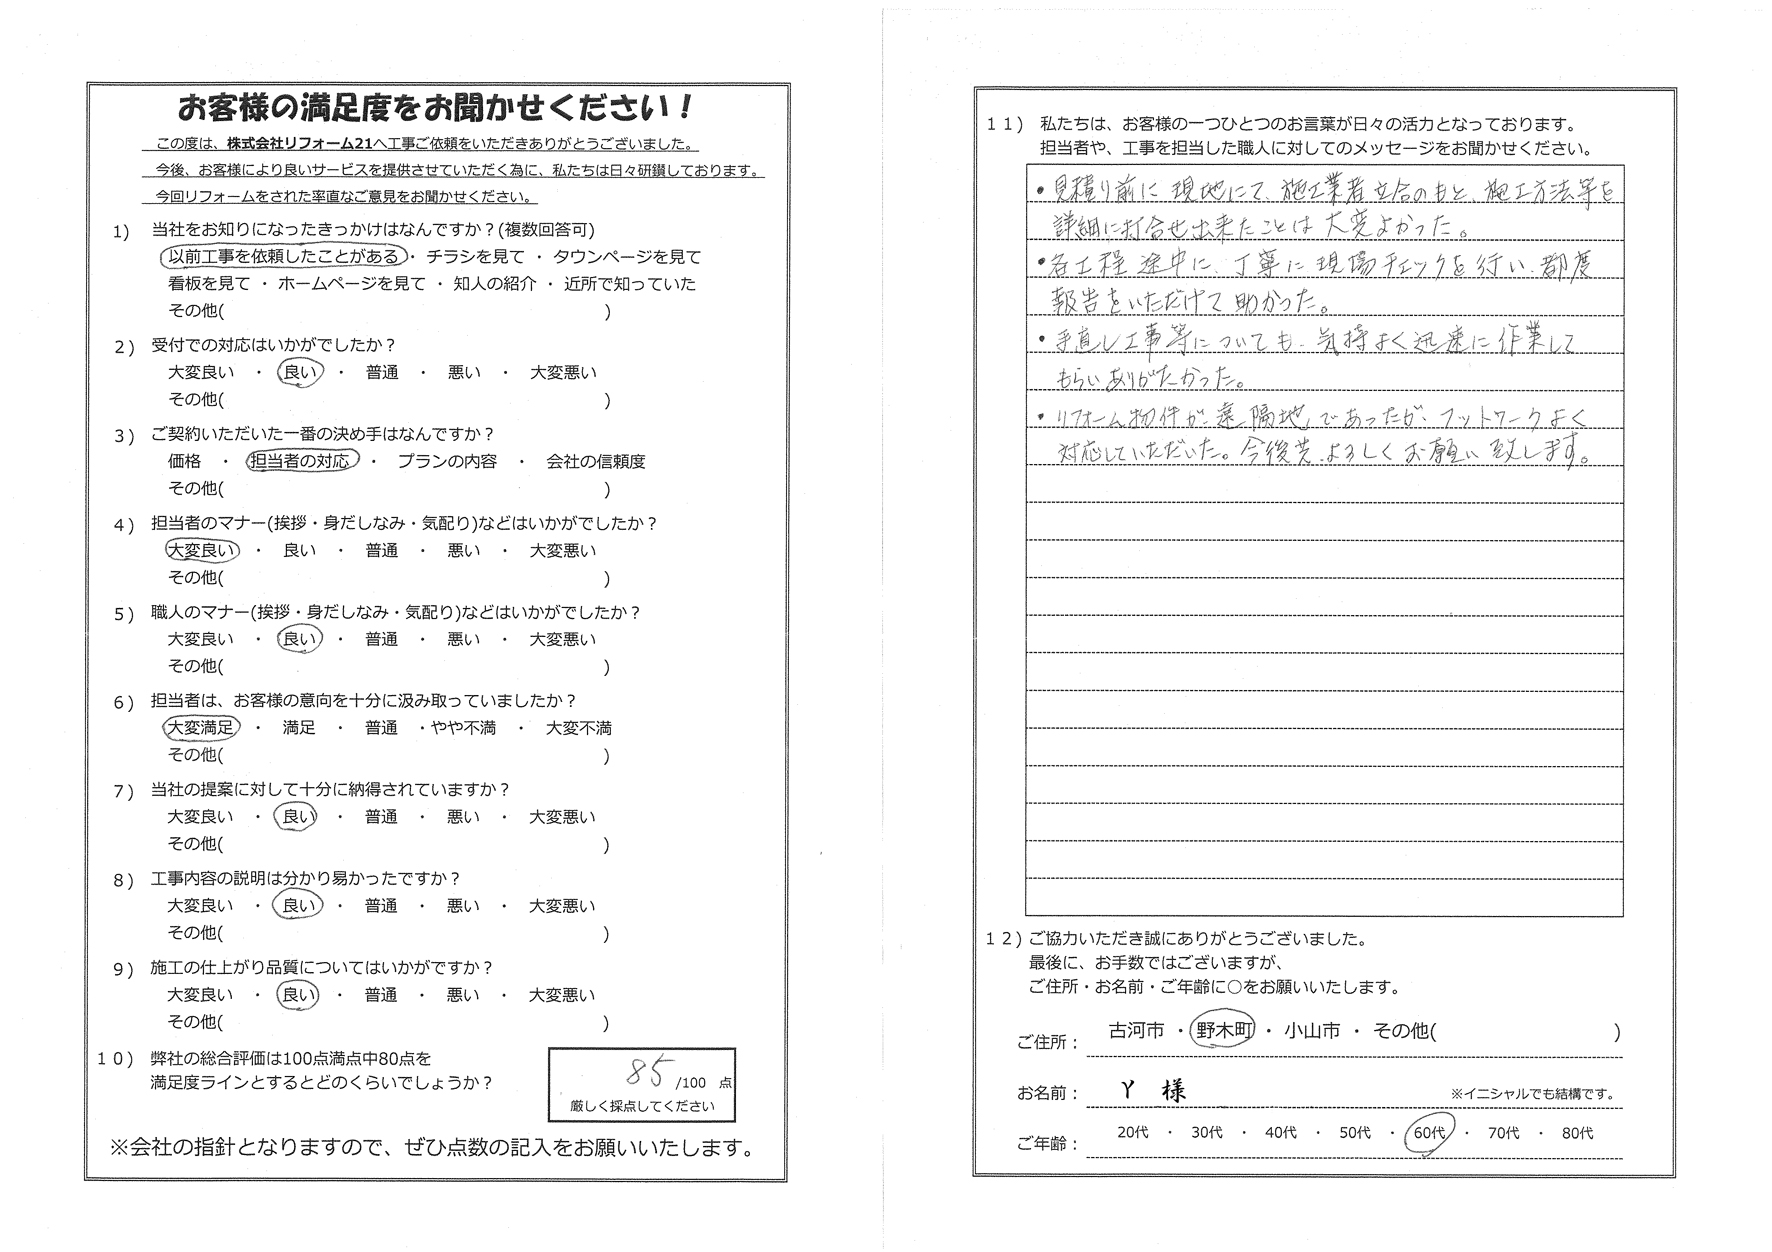 お客様の満足度をお聞かせください！
この度は、株式会社リフォーム21へ工事ご依頼をいただきありがとうございました。
今後、お客様により良いサービスを提供させていただく為に、私たちは日々研鑽しております。
今回リフォームをされた率直なご意見をお聞かせください。
1) 当社をお知りになったきっかけはなんですか？(複数回答可)
以前工事を依頼したことがある ・ チラシを見て ・ タウンページを見て
看板を見て ・ ホームページを見て ・ 知人の紹介 ・ 近所で知っていた
その他( )
2) 受付での対応はいかがでしたか？
大変良い ・ 良い ・ 普通 ・ 悪い ・ 大変悪い
その他( )
3) ご契約いただいた一番の決め手はなんですか？
価格 ・ 担当者の対応 ・ プランの内容 ・ 会社の信頼度
その他( )
4) 担当者のマナー(挨拶・身だしなみ・気配り)などはいかがでしたか？
大変良い ・ 良い ・ 普通 ・ 悪い ・ 大変悪い
その他( )
5) 職人のマナー(挨拶・身だしなみ・気配り)などはいかがでしたか？
大変良い ・ 良い ・ 普通 ・ 悪い ・ 大変悪い
その他( )
6) 担当者は、お客様の意向を十分に汲み取っていましたか？
大変満足 ・ 満足 ・ 普通 ・やや不満 ・ 大変不満
その他( )
7) 当社の提案に対して十分に納得されていますか？
大変良い ・ 良い ・ 普通 ・ 悪い ・ 大変悪い
その他( )
8) 工事内容の説明は分かり易かったですか？
大変良い ・ 良い ・ 普通 ・ 悪い ・ 大変悪い
その他( )
9) 施工の仕上がり品質についてはいかがですか？
大変良い ・ 良い ・ 普通 ・ 悪い ・ 大変悪い
その他( )
10) 弊社の総合評価は100点満点中80点を
満足度ラインとするとどのくらいでしょうか？
85 /100 点
厳しく採点してください
※会社の指針となりますので、ぜひ点数の記入をお願いいたします。
11) 私たちは、お客様の一つひとつのお言葉が日々の活力となっております。
担当者や、工事を担当した職人に対してのメッセージをお聞かせください。
・見積り前に現地にて、施工業者立合のもと、施工方法等を
詳細に打合せ出来たことは大変よかった。
・各工程途中に、丁寧に現場チェックを行い、都度
報告をいただけて助かった。
・手直し工事等についても、気持よく迅速に作業して
もらいありがたかった。
・リフォーム物件が遠隔地であったが、フットワークよく
対応していただいた。今後共よろしくお願い致します。
12) ご協力いただき誠にありがとうございました。
最後に、お手数ではございますが、
ご住所・お名前・ご年齢に○をお願いいたします。
ご住所： 古河市 ・ 野木町 ・ 小山市 ・ その他( )
お名前： Y 様 ※イニシャルでも結構です。
ご年齢： 20代 ・ 30代 ・ 40代 ・ 50代 ・ 60代 ・ 70代 ・ 80代